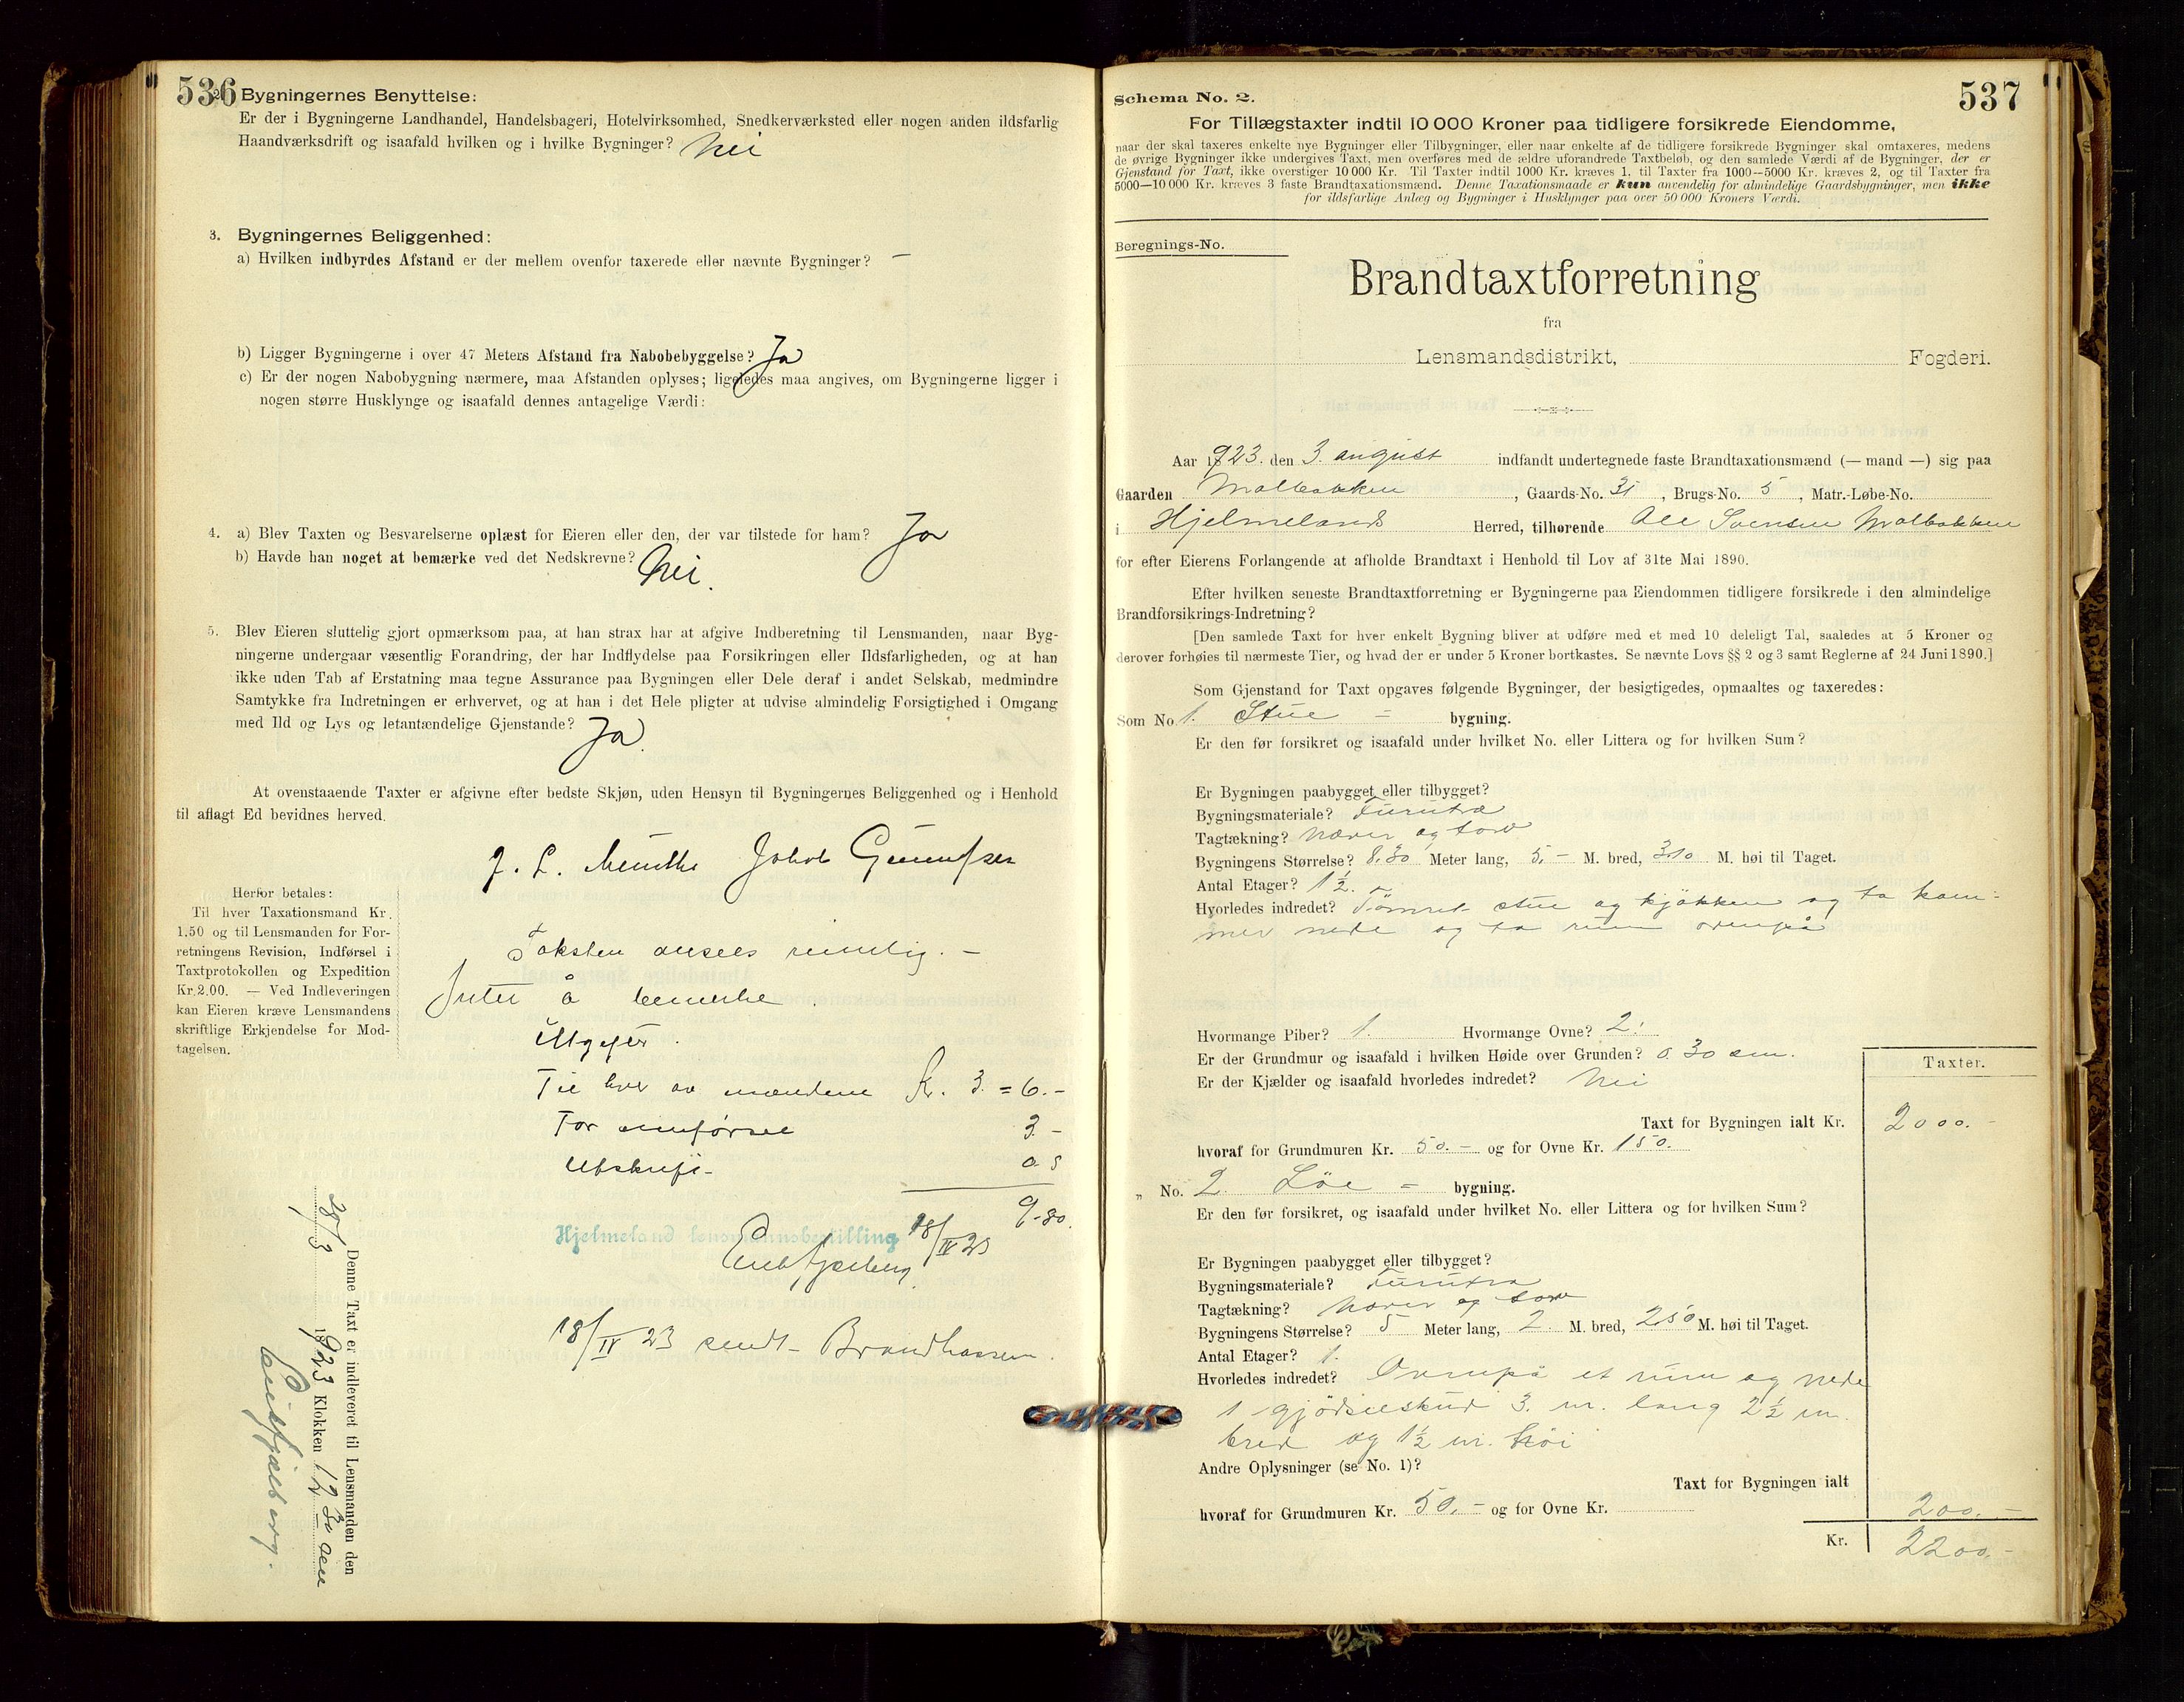 536
2. Bygningernes Benyttelse:
Er der i Bygningerne Landhandel, Handelsbageri, Hotelvirksomhed, Snedkerværksted eller nogen anden ildsfarlig
Haandværksdrift og isaafald hvilken og i hvilke Bygninger? Nei
3. Bygningernes Beliggenhed:
a) Hvilken indbyrdes Afstand er der mellem ovenfor taxerede eller nævnte Bygninger? —
b) Ligger Bygningerne i over 47 Meters Afstand fra Nabobebyggelse? Ja
c) Er der nogen Nabobygning nærmere, maa Afstanden oplyses; ligeledes maa angives, om Bygningerne ligger i
nogen større Husklynge og isaafald dennes antagelige Værdi:
4. a) Blev Taxten og Besvarelserne oplæst for Eieren eller den, der var tilstede for ham? Ja
b) Havde han noget at bemærke ved det Nedskrevne? Nei.
5. Blev Eieren sluttelig gjort opmærksom paa, at han strax har at afgive Indberetning til Lensmanden, naar Byg-
ningerne undergaar væsentlig Forandring, der har Indflydelse paa Forsikringen eller Ildsfarligheden, og at han
ikke uden Tab af Erstatning maa tegne Assurance paa Bygningen eller Dele deraf i andet Selskab, medmindre
Samtykke fra Indretningen er erhvervet, og at han i det Hele pligter at udvise almindelig Forsigtighed i Omgang
med Ild og Lys og letantændelige Gjenstande? Ja.
At ovenstaaende Taxter er afgivne efter bedste Skjøn, uden Hensyn til Bygningernes Beliggenhed og i Henhold
til aflagt Ed bevidnes herved.
J. L. Munthe
Herfor betales:
Til hver Taxationsmand Kr.
1.50 og til Lensmanden for For-
retningens Revision, Indførsel i
Taxtprotokollen og Expedition
Kr. 2.00. — Ved Indleveringen
kan Eieren kræve Lensmandens
skriftlige Erkjendelse for Mod-
tagelsen.
Taksten ansees rimelig. —
Intet å bemerke.
Utgifter.
Til hver av mændene Kr. 3. = 6.—
For innførsel 3.—
Utskrift
9.80.
Hjelmeland lensmannsbestilling 18/IV 23
18/IV 23 sendt Brandkassen.
Denne Taxt er indleveret til Lensmanden den
1923 Klokken 12 30
537
Schema No. 2.
For Tillægstaxter indtil 10 000 Kroner paa tidligere forsikrede Eiendomme,
naar der skal taxeres enkelte nye Bygninger eller Tilbygninger, eller naar enkelte af de tidligere forsikrede Bygninger skal omtaxeres, medens
de øvrige Bygninger ikke undergives Taxt, men overføres med de ældre uforandrede Taxtbeløb, og den samlede Værdi af de Bygninger, der er
Gjenstand for Taxt, ikke overstiger 10 000 Kr. Til Taxter indtil 1000 Kr. kræves 1, til Taxter fra 1000—5000 Kr. kræves 2, og til Taxter fra
5000—10 000 Kr. kræves 3 faste Brandtaxationsmænd. Denne Taxationsmaade er kun anvendelig for almindelige Gaardsbygninger, men ikke
for ildsfarlige Anlæg og Bygninger i Husklynger paa over 50 000 Kroners Værdi.
Beregnings-No.
Brandtaxtforretning
fra
Lensmandsdistrikt, Fogderi.
Aar 1923. den 3. august indfandt undertegnede faste Brandtaxationsmænd (— mand —) sig paa
Gaarden Molbakken, Gaards-No. 31, Brugs-No. 5, Matr.-Løbe-No.
i Hjelmeland Herred, tilhørende Ole Svensen Molbakken
for efter Eierens Forlangende at afholde Brandtaxt i Henhold til Lov af 31te Mai 1890.
Efter hvilken seneste Brandtaxtforretning er Bygningerne paa Eiendommen tidligere forsikrede i den almindelige
Brandforsikrings-Indretning?
[Den samlede Taxt for hver enkelt Bygning bliver at udføre med et med 10 deleligt Tal, saaledes at 5 Kroner og
derover forhøies til nærmeste Tier, og hvad der er under 5 Kroner bortkastes. Se nævnte Lovs §§ 2 og 3 samt Reglerne af 24 Juni 1890.]
Som Gjenstand for Taxt opgaves følgende Bygninger, der besigtigedes, opmaaltes og taxeredes:
Som No 1. Stue = bygning.
Er den før forsikret og isaafald under hvilket No. eller Littera og for hvilken Sum?
Er Bygningen paabygget eller tilbygget?
Bygningsmateriale? Furutræ
Tagtækning? Næver og torv
Bygningens Størrelse? 8.30 Meter lang, 5,— M. bred, 3.10 M. høi til Taget.
Antal Etager? 1½.
Hvorledes indredet? Tømret stue og kjøkken og to kam=
mer nede og to rum ovenpå
Hvormange Piber? 1. Hvormange Ovne? 2.
Er der Grundmur og isaafald i hvilken Høide over Grunden? 0.30 cm.
Er der Kjælder og isaafald hvorledes indredet? Nei
Taxter.
Taxt for Bygningen ialt Kr. 2000.—
hvoraf for Grundmuren Kr. 50.— og for Ovne Kr. 150.
„ No. 2 Löe = bygning.
Er den før forsikret, og isaafald under hvilket No. eller Littera og for hvilken Sum?
Er Bygningen paabygget eller tilbygget?
Bygningsmateriale? Furutræ
Tagtækning? Næver og torv
Bygningens Størrelse? 5 Meter lang, 2. M. bred, 250 M. høi til Taget.
Antal Etager? 1.
Hvorledes indredet? Ovenpå et rum og nede
1 gjödselskur 3. m. lang 2½ m.
bred og 1½ m. høi
Andre Oplysninger (se No. 1)?
Taxt for Bygningen ialt
hvoraf for Grundmuren Kr. 50.— og for Ovne Kr. 200.—
Kr. 2200.—